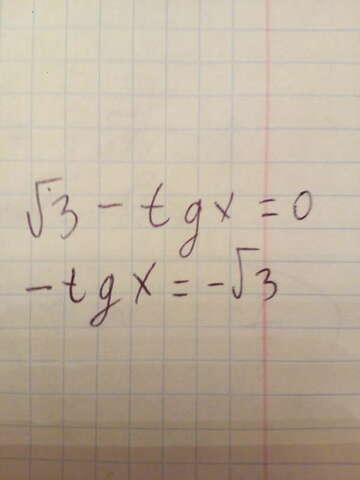 √3 - tgx = 0
-tgx = -√3